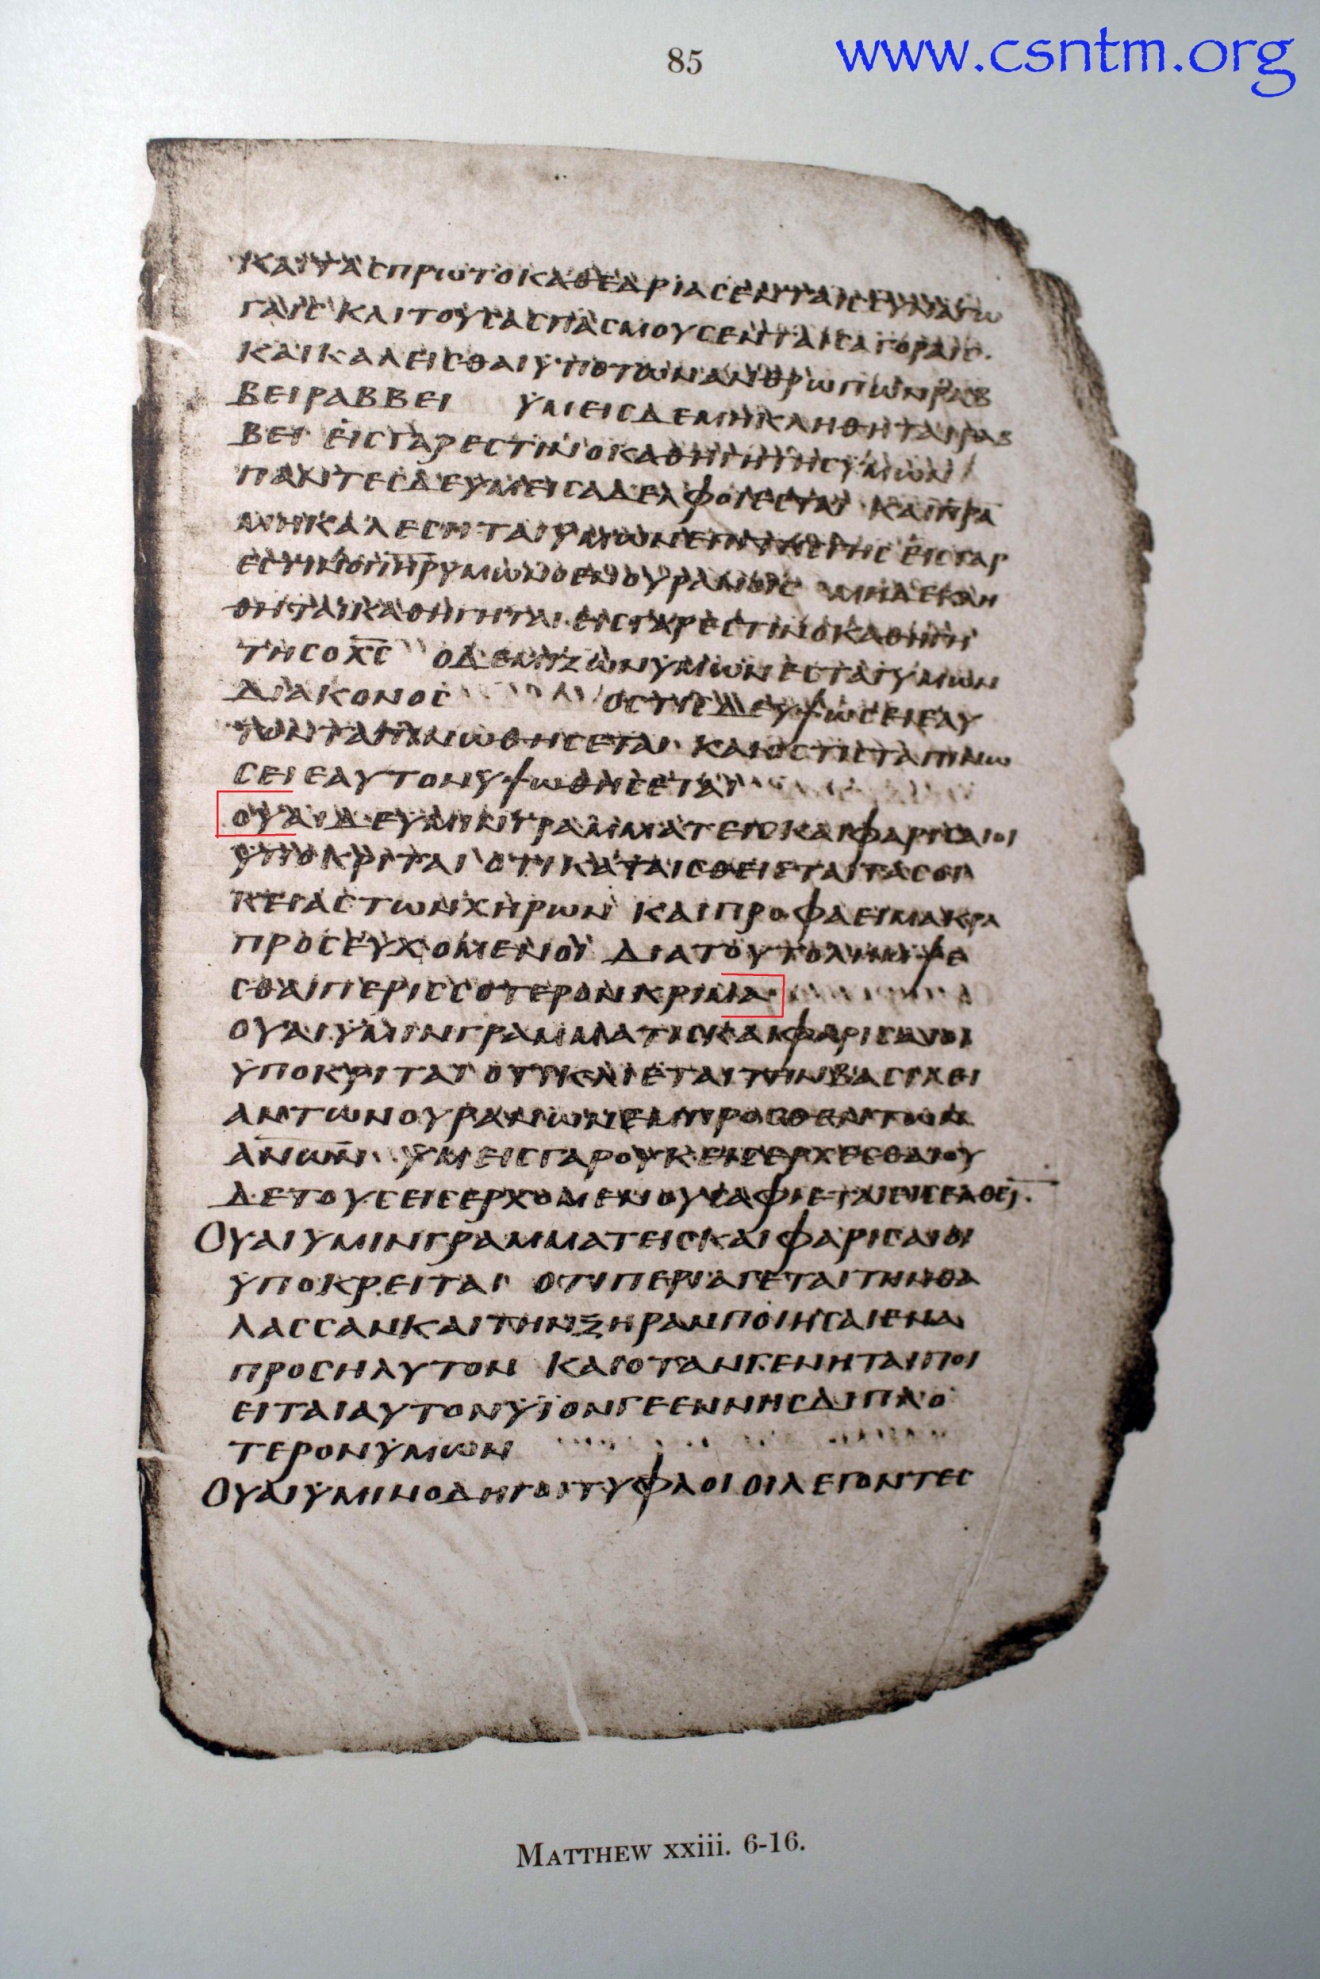 85
www.csntm.org
ΚΑΙ ΤΑC ΠΡωΤΟΚΑΘΕΔΡΙΑC ΕΝ ΤΑΙC CΥΝΑΓω
ΓΑΙC ΚΑΙ ΤΟΥC ΑCΠΑCΜΟΥC ΕΝ ΤΑΙC ΑΓΟΡΑΙC·
ΚΑΙ ΚΑΛΕΙCΘΑΙ ΥΠΟ ΤωΝ ΑΝΘΡωΠωΝ ΡΑΒ
ΒΕΙ ΡΑΒΒΕΙ ΥΜΕΙC ΔΕ ΜΗ ΚΛΗΘΗΤΑΙ ΡΑΒ
ΒΕΙ ΕΙC ΓΑΡ ΕCΤΙΝ Ο ΚΑΘΗΓΗΤΗC ΥΜωΝ
ΠΑΝΤΕC ΔΕ ΥΜΕΙC ΑΔΕΛΦΟΙ ΕCΤΑΙ ΚΑΙ Π̅Ρ̅Α̅
ΜΗ ΚΑΛΕCΗΤΑΙ ΥΜωΝ ΕΠΙ ΤΗC ΓΗC ΕΙC ΓΑΡ
ΕCΤΙΝ Ο Π̅Η̅Ρ̅ ΥΜωΝ Ο ΕΝ ΟΥΡΑΝΟΙC ΜΗΔΕ ΚΛΗ
ΘΗΤΑΙ ΚΑΘΗΓΗΤΑΙ· ΕΙC ΓΑΡ ΕCΤΙΝ Ο ΚΑΘΗΓΗ
ΤΗC Ο Χ̅C̅ Ο ΔΕ ΜΙΖωΝ ΥΜωΝ ΕCΤΑΙ ΥΜωΝ
ΔΙΑΚΟΝΟC ΟCΤΙC ΔΕ ΥΨωCΕΙ ΕΑΥ
ΤΟΝ ΤΑΠΙΝωΘΗCΕΤΑΙ· ΚΑΙ ΟCΤΙC ΤΑΠΙΝω
CΕΙ ΕΑΥΤΟΝ ΥΨωΘΗCΕΤΑΙ
ΟΥΑΙ ΔΕ ΥΜΙΝ ΓΡΑΜΜΑΤΕΙC ΚΑΙ ΦΑΡΙCΑΙΟΙ
ΥΠΟΚΡΙΤΑΙ ΟΤΙ ΚΑΤΑΙCΘΕΙΕΤΑΙ ΤΑC ΟΙ
ΚΕΙΑC ΤωΝ ΧΗΡωΝ ΚΑΙ ΠΡΟΦΑCΕΙ ΜΑΚΡΑ
ΠΡΟCΕΥΧΟΜΕΝΟΙ ΔΙΑ ΤΟΥΤΟ ΛΗΜΨΕ
CΘΑΙ ΠΕΡΙCCΟΤΕΡΟΝ ΚΡΙΜΑ·
ΟΥΑΙ ΥΜΙΝ ΓΡΑΜΜΑΤΙC ΚΑΙ ΦΑΡΙCΑΙΟΙ
ΥΠΟΚΡΙΤΑΙ ΟΤΙ ΚΛΙΕΤΑΙ ΤΗΝ ΒΑCΙΛΕΙ
ΑΝ ΤωΝ ΟΥΡΑΝωΝ ΕΜΠΡΟCΘΕΝ ΤωΝ
Α̅Ν̅ω̅Ν̅ ΥΜΕΙC ΓΑΡ ΟΥΚ ΕΙCΕΡΧΕCΘΑΙ ΟΥ
ΔΕ ΤΟΥC ΕΙCΕΡΧΟΜΕΝΟΥC ΑΦΙΕΤΑΙ ΕΙCΕΛΘΕΙ̅·
ΟΥΑΙ ΥΜΙΝ ΓΡΑΜΜΑΤΕΙC ΚΑΙ ΦΑΡΙCΑΙΟΙ
ΥΠΟΚΡΕΙΤΑΙ ΟΤΙ ΠΕΡΙΑΓΕΤΑΙ ΤΗΝ ΘΑ
ΛΑCCΑΝ ΚΑΙ ΤΗΝ ΞΗΡΑΝ ΠΟΙΗCΑΙ ΕΝΑ
ΠΡΟCΗΛΥΤΟΝ ΚΑΙ ΟΤΑΝ ΓΕΝΗΤΑΙ ΠΟΙ
ΕΙΤΑΙ ΑΥΤΟΝ ΥΙΟΝ ΓΕΕΝΝΗC ΔΙΠΛΟ
ΤΕΡΟΝ ΥΜωΝ
ΟΥΑΙ ΥΜΙΝ ΟΔΗΓΟΙ ΤΥΦΛΟΙ ΟΙ ΛΕΓΟΝΤΕC
MATTHEW xxiii. 6-16.